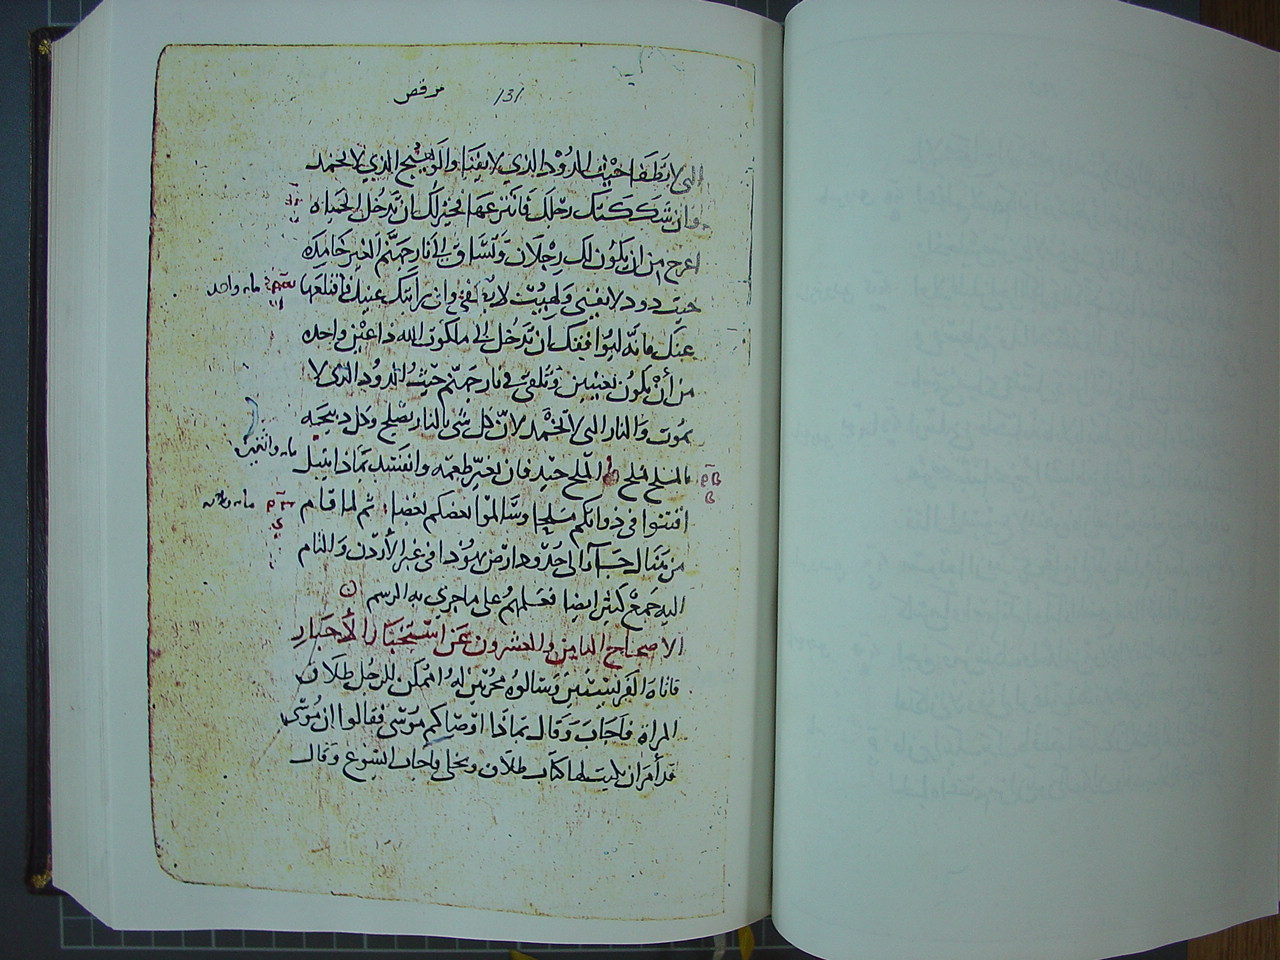 131 مرقص
التي لا تطفا حيث الدود الذي لا يفنا والوهيج الذي لا يخمد
وان شككتك رجلك فانتزعها فخير لك ان تدخل الحياه
اعرج من ان يكون لك رجلان وتساق الي نار جهنم الغير خامده
حيث دود لا يفني ولهيب لا يطفي وان رابتك عينك فاقتلعها
عنك فانه ليوافقك ان تدخل الي ملكوت الله ذا عين واحده
من أن يكون بعينين وتلقي في نار جهنم حيث الدود الذي لا
يموت والنار التي لا تخمد لان كل شي بالنار يصلح وكل دبيحه
بالملح تملح الملح جيد فان تغير طعمه وانفسد بماذا يتبل
اقتنوا في ذواتكم ملحا وسالموا بعضكم بعضا ثم لما قام
من هنال جا الى حدود ارض يهودا في عبر الأردن والتام
اليه جمع كثير ايضا فعلمهم على ما جرى به الرسم
الاصحاح الثامن والعشرون عن استخبار الأحبار
فاتاه الفريسيين وسالوه مجربين له ا يمكن للرجل طلاق
المراة فاجاب وقال بماذا اوصاكم موسى فقالوا ان موسى
قد أمر ان يكتب لها كتاب طلاق ويخلي فاجاب ايسوع وقال
مايه واحد
مايه واثنين